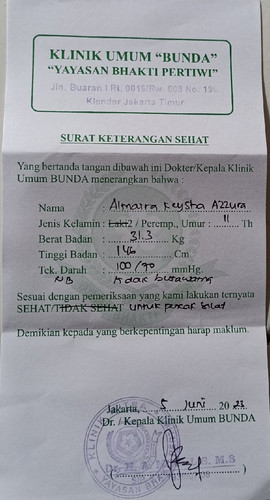 KLINIK UMUM "BUNDA"
"YAYASAN BHAKTI PERTIWI"
Jln. Buaran I Rt. 0015/Rw. 003 No.
Klender Jakarta Timur
SURAT KETERANGAN SEHAT
Yang bertanda tangan dibawah ini Dokter/Kepala Klinik
Umum BUNDA menerangkan bahwa :
Nama : Almaira Keysha Azzura
Jenis Kelamin : Laki2 / Peremp., Umur : 11 Th
Berat Badan : 31.3 Kg
Tinggi Badan : 146 Cm
Tek. Darah : 100/70 mmHg.
NB tidak butawarna
Sesuai dengan pemeriksaan yang kami lakukan ternyata
SEHAT/TIDAK SEHAT untuk pencak silat
Demikian kepada yang berkepentingan harap maklum.
Jakarta, 5 Juni 2023
Dr. / Kepala Klinik Umum BUNDA